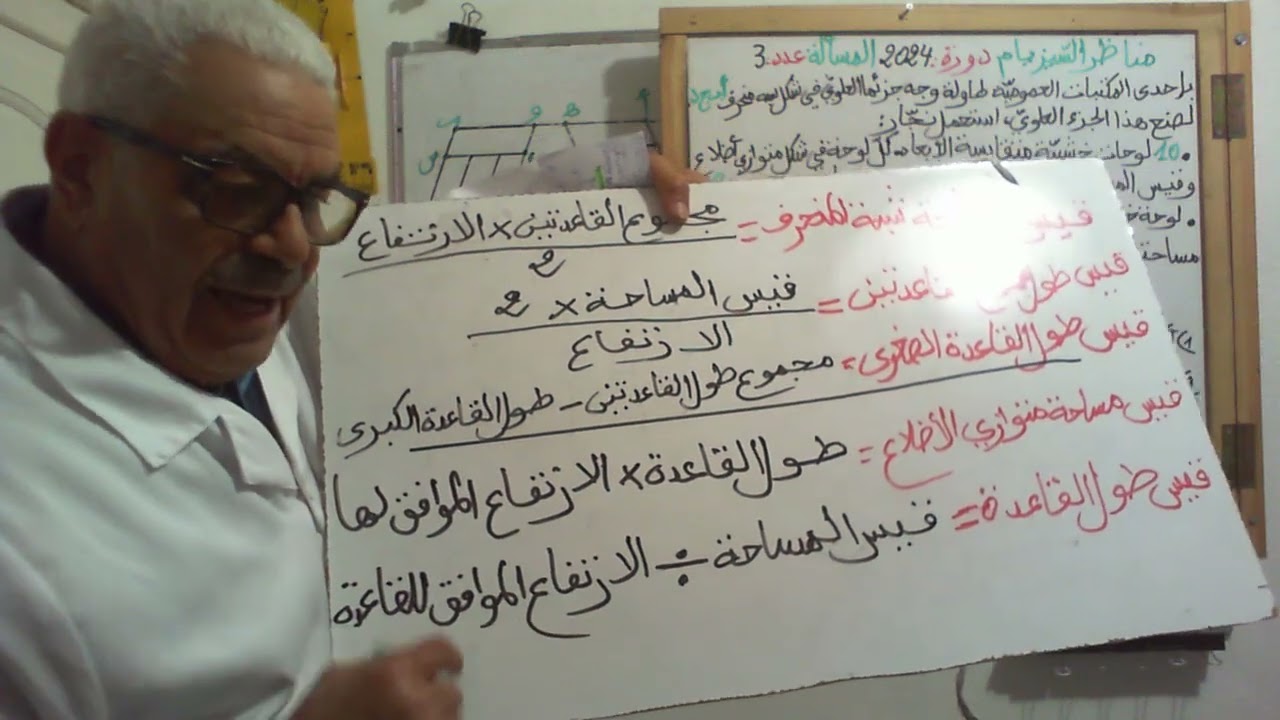 مناظر السيزيام دورة 2024 المسألة عدد 3
بإحدى المكتبات العمومية طاولة وجه جزئها العلوي في شكل شبه منحرف
لصنع هذا الجزء العلوي، استعمل نجّار:
10 لوحات خشبية متقايسة الأبعاد كل لوحة في شكل متوازي أضلاع
وقيس
لوحة
مساحة
قيس شبه المنحرف = مجموع القاعدتين × الارتفاع
2
قيس طول القاعدتين = قيس المساحة × 2
الارتفاع
قيس طول القاعدة الصغرى = مجموع طول القاعدتين - طول القاعدة الكبرى
قيس مساحة متوازي الأضلاع = طول القاعدة × الارتفاع الموافق لها
قيس طول القاعدة = قيس المساحة ÷ الارتفاع الموافق للقاعدة